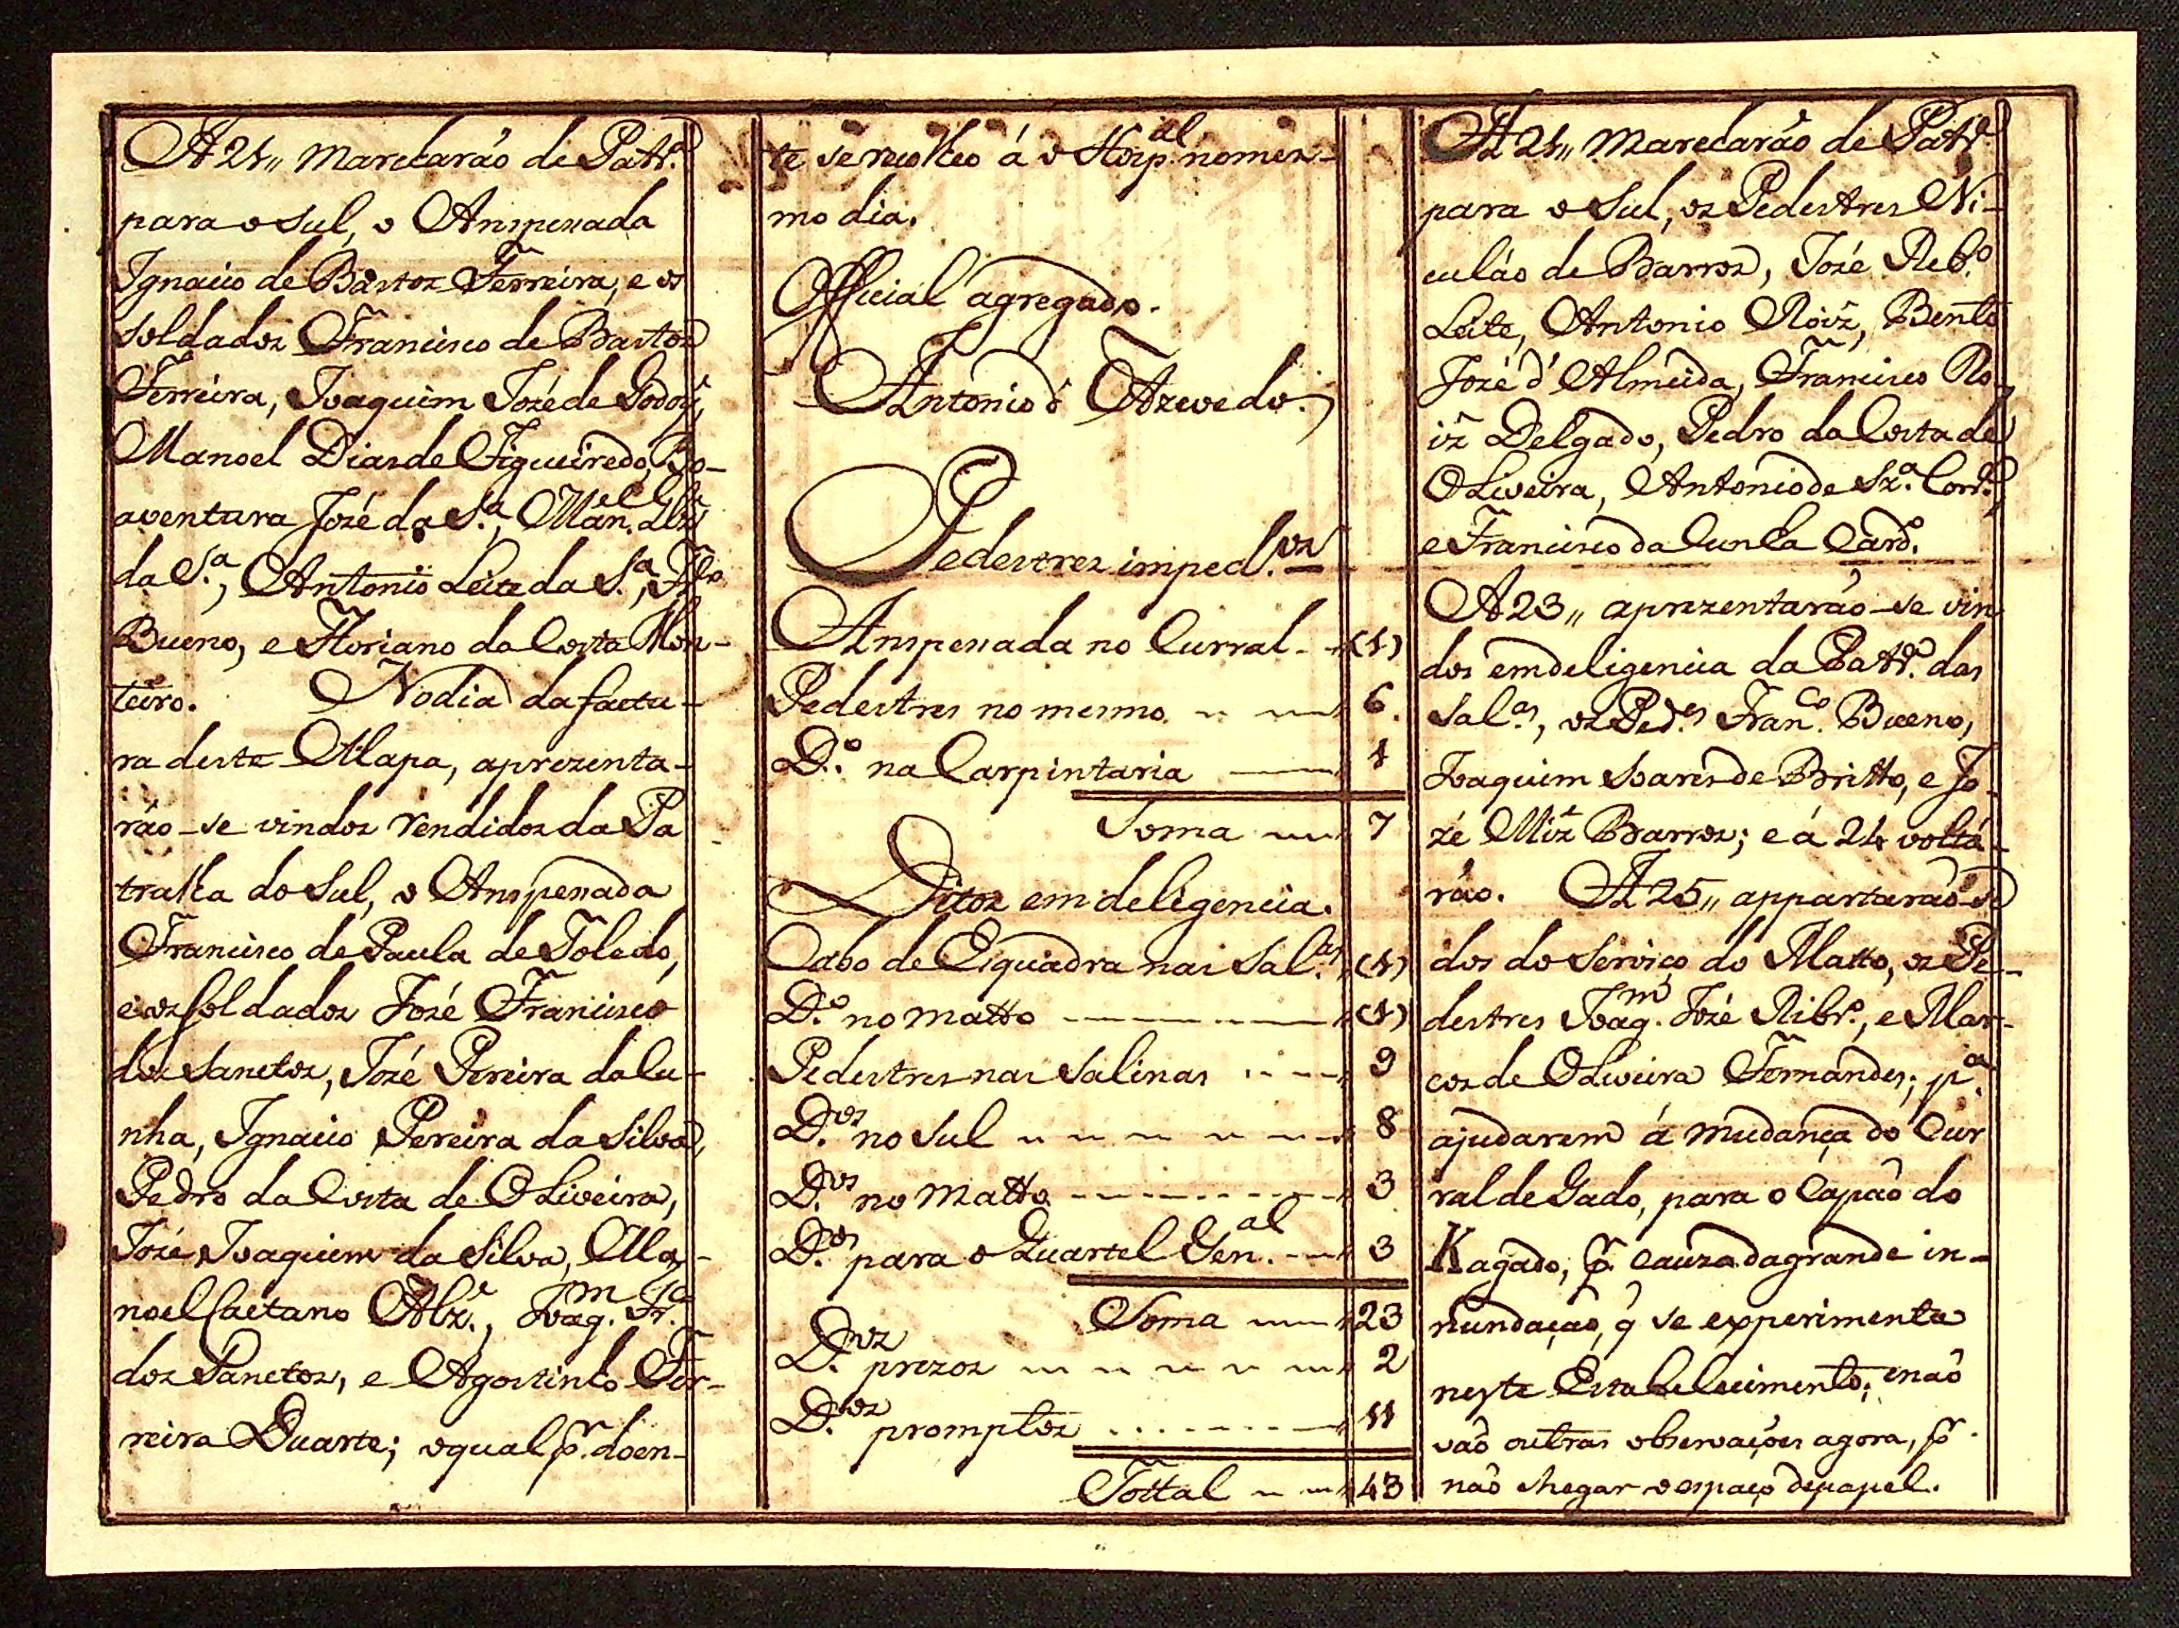 A 21,, marcharão de Patr.ª
para o Sul, o Anspesada
Ignacio de Bastos Ferreira, e os
soldados Francisco de Bastos
Ferreira, Joaquim Jozé de Godoy,
Manoel Dias de Figueiredo, Bo-
aventura Jozé da S.ª, Man.el Alz'
da S.ª, Antonio Leite da S.ª,
Bueno, e Floriano da Costa Mon-
teiro. No dia da factu-
ra deste Mapa, aprezenta-
rão-se vindos rendidos da Pa
trulha do Sul, o Anspesada
Francisco de Paula de Toledo,
e os soldados Jozé Francisco
dos Sanctos, Jozé Pereira da Cu-
nha, Ignacio Pereira da Silva,
Pedro da Costa de Oliveira,
Jozé Joaquim da Silva, Ma-
noel Caetano Alz'., Joaq.m Fr.ª
dos Sanctos, e Agostinho Fer-
reira Duarte; o qual p.r doen-
te se recolheo á o Hosp.al no mes-
mo dia.
Official agregado.
Antonio d' Azevedo.
Pedestres imped.os
Anspesada no Curral (1)
Pedestres no mesmo 6.
D.º na Carpintaria 1
Soma 7
Ditos em deligencia.
Cabo de Esquadra nas Sal.as (1)
D.º no matto (1)
Pedestres nas Salinas 9
D.os no Sul 8
D.os no Matto 3
D.os para o Quartel Gen.al 3
Soma 23
D.os prezos 2
D.os promptos 11
Tottal 43
A 21,, marcharão de Patr.ª
para o Sul, os Pedestres Ni-
culáo de Barros, Jozé Rib.º
Leite, Antonio Roiz, Bento
Jozé d' Almeida, Francisco Ro-
iz Delgado, Pedro da Costa de
Oliveira, Antonio de Sz.ª Cord.º,
e Francisco da Cunha Card.º
A 23,, aprezentarão-se vin
dos em deligencia da Patr.ª das
Sal.as, os Ped.es Fran.co Bueno,
Joaquim Soares de Britto, e Jo-
zé Miz Barros; e á 24 voltá-
rão. A 25,, appartarão-se
dos do Serviço do Matto, os Pe-
destres Joaq.m Jozé Ribr.º, e Mar-
cos de Oliveira Fernandes; p.ª
ajudarem á mudança do Cur
ral de Gado, para o Capão do
Kagado, p.r cauza da grande in-
nundação, q' se experimenta
neste Estabelecimento; e não
vão outras observações agora, p.r
não chegar o espaço de papel.